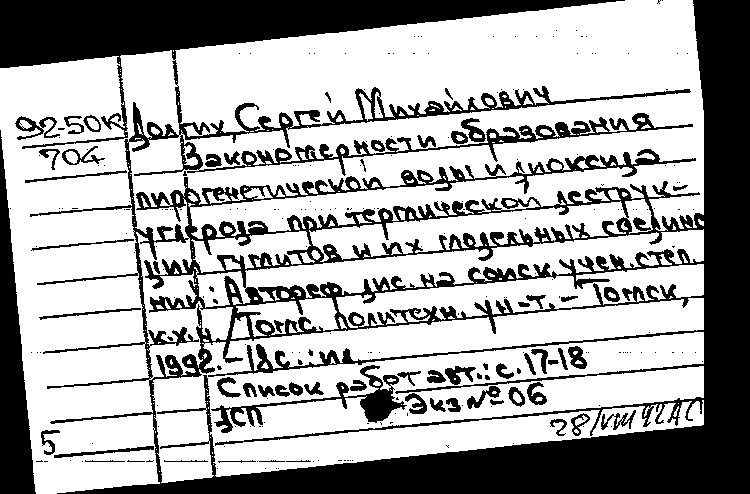 92-50к
704
Долгих, Сергей Михайлович
Закономерности образования
пирогенетической воды и диоксида
углерода при термической деструк-
ции гумитов и их модельных соедине
ний: Автореф. дис. на соиск. учен. степ.
к.х.н. / Томс. политехн. ун-т. – Томск,
1992. – 18 с.: ил.
Список работ авт.: с. 17-18
ДСП Экз № 06
5
28/VIII 92